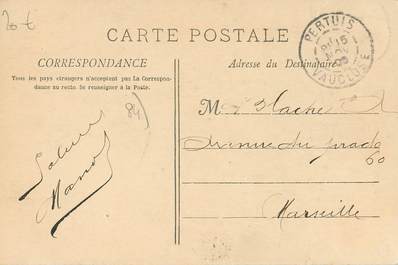 20 €
CARTE POSTALE
CORRESPONDANCE
Tous les pays étrangers n'acceptent pas La Correspon-
dance au recto. Se renseigner à la Poste.
Adresse du Destinataire
PERTUIS
VAUCLUSE
(84)
M
Avenue du prado
60
Marseille